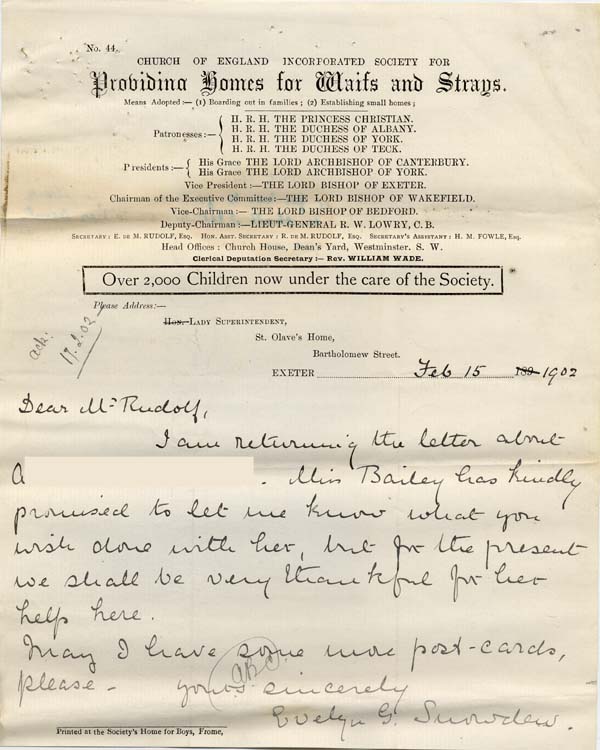 No. 44.
CHURCH OF ENGLAND INCORPORATED SOCIETY FOR
Providing Homes for Waifs and Strays.
Means Adopted :— (1) Boarding out in families ; (2) Establishing small homes ;
Patronesses :—
H. R. H. THE PRINCESS CHRISTIAN.
H. R. H. THE DUCHESS OF ALBANY.
H. R. H. THE DUCHESS OF YORK.
H. R. H. THE DUCHESS OF TECK.
Presidents :—
His Grace THE LORD ARCHBISHOP OF CANTERBURY.
His Grace THE LORD ARCHBISHOP OF YORK.
Vice President :—THE LORD BISHOP OF EXETER.
Chairman of the Executive Committee :—THE LORD BISHOP OF WAKEFIELD.
Vice-Chairman :— THE LORD BISHOP OF BEDFORD.
Deputy-Chairman :—LIEUT-GENERAL R. W. LOWRY, C. B.
SECRETARY : E. DE M. RUDOLF, ESQ. HON. ASST. SECRETARY : R. DE M. RUDOLF, ESQ. SECRETARY'S ASSISTANT : H. M. FOWLE, ESQ.
Head Offices : Church House, Dean's Yard, Westminster. S. W.
Clerical Deputation Secretary :— Rev. WILLIAM WADE.
Over 2,000 Children now under the care of the Society.
Please Address:—
Hon. LADY SUPERINTENDENT,
St. Olave's Home,
Bartholomew Street.
EXETER Feb 15 189 1902
ack:
17.2.02
Dear Mr Rudolf,
I am returning the letter about
A . Miss Bailey has kindly
promised to let me know what you
wish done with her, but for the present
we shall be very thankful for her
help here.
May I have some more post-cards,
please – yours sincerely
Evelyn G. Snowden.
Printed at the Society's Home for Boys, Frome,